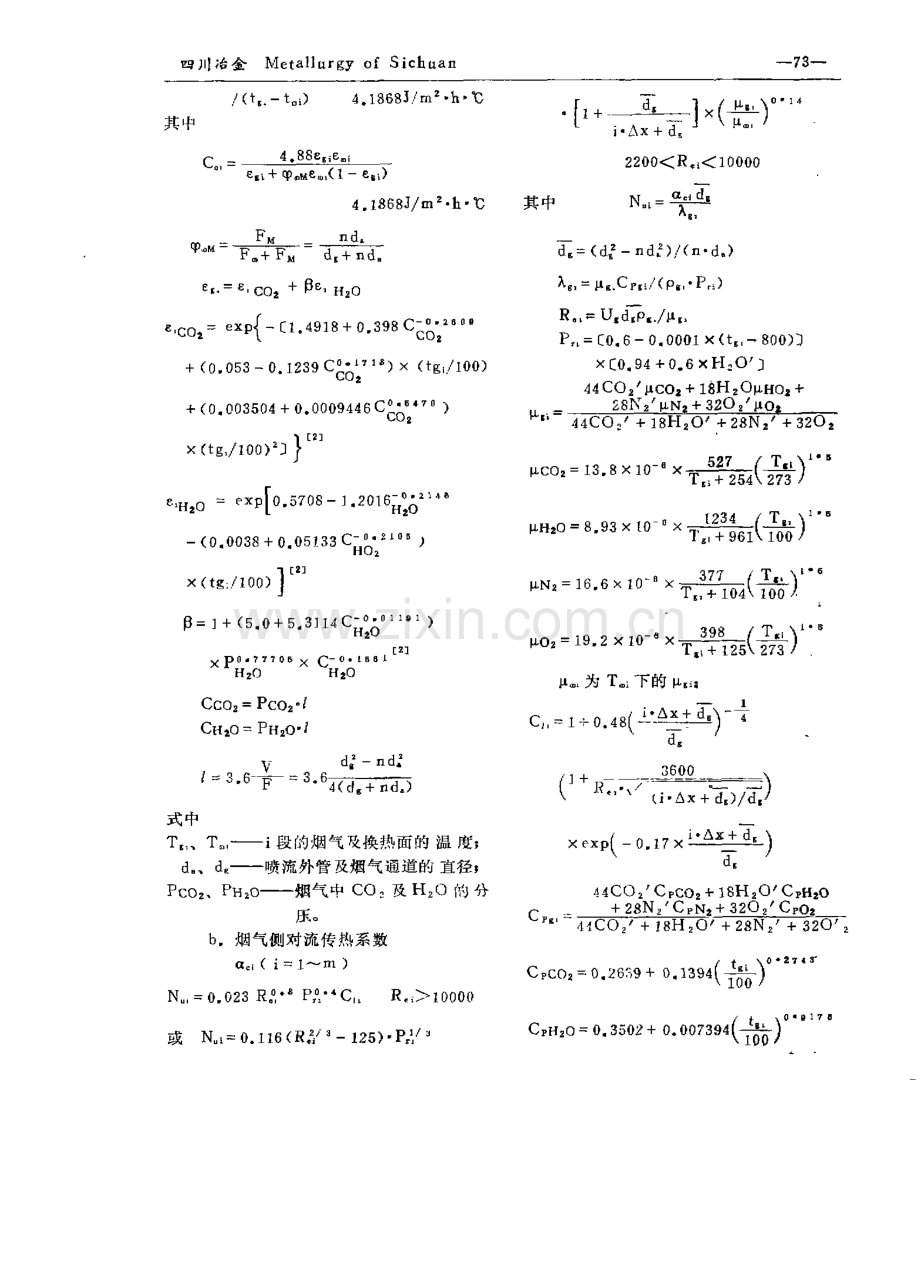 四川冶金 Metallurgy of Sichuan —73—
/(tg.-toi) 4.1868J/m²·h·℃
其中
Coi = 4.88εgiεmi / εgi+φωMεmi(1-εgi)
4.1868J/m²·h·℃
φωM = FM / Fω+FM = nda / dg+nda
εg. = ε,CO₂ + βε,H₂O
ε,CO₂ = exp{-[1.4918+0.398C⁻⁰·²⁶⁰⁰CO₂
+(0.053-0.1239C⁰·¹⁷¹⁸CO₂)×(tgi/100)
+(0.003504+0.0009446C⁰·⁶⁴⁷⁰CO₂)
×(tgi/100)²]}[2]
εiH₂O = exp[0.5708-1.2016⁻⁰·²¹⁴⁸H₂O
-(0.0038+0.05133C⁻⁰·²¹⁰⁵HO₂)
×(tgi/100)][2]
β=1+(5.0+5.3114C⁻⁰·⁰¹¹⁹¹H₂O)
×P⁰·⁷⁷⁷⁰⁶H₂O×C⁻⁰·¹⁵⁶¹H₂O[2]
CCO₂=PCO₂·l
CH₂O=PH₂O·l
l=3.6 V/F =3.6 dg²-nda² / 4(dg+nda)
式中
Tgi、Tωi——i段的烟气及换热面的温度;
da、dg——喷流外管及烟气通道的直径;
PCO₂、PH₂O——烟气中CO₂及H₂O的分
压。
b. 烟气侧对流传热系数
αci(i=1~m)
Nui=0.023 Rei⁰·⁸ Pri⁰·⁴ C li Rei>10000
或 Nui=0.116(Rei²/³-125)·Pri¹/³
·[1+ dg / i·Δx+dg]×(μgi / μωi)⁰·¹⁴
2200<Rei<10000
其中 Nui= αci dg / λgi
dg=(dg²-nda²)/(n·da)
λgi=μg.CPgi/(ρgi·Pri)
Rei=Ugdgρg./μgi
Pri=[0.6-0.0001×(tgi-800)]
×[0.94+0.6×H₂O′]
μgi= 44CO₂′μCO₂+18H₂OμHO₂+
28N₂′μN₂+32O₂′μO₂ / 44CO₂′+18H₂O′+28N₂′+32O₂
μCO₂=13.8×10⁻⁶× 527 / Tgi+254 (Tgi / 273)¹·⁵
μH₂O=8.93×10⁻⁶× 1234 / Tgi+961 (Tgi / 100)¹·⁵
μN₂=16.6×10⁻⁶× 377 / Tgi+104 (Tgi / 100)¹·⁵
μO₂=19.2×10⁻⁶× 398 / Tgi+125 (Tgi / 273)¹·⁵
μωi为Tωi下的μgi;
Cli=1+0.48(i·Δx+dg / dg)⁻¹/⁴
(1+ 3600 / Rei·√(i·Δx+dg)/dg)
×exp(-0.17× i·Δx+dg / dg)
CPgi= 44CO₂′CPCO₂+18H₂O′CPH₂O
+28N₂′CPN₂+32O₂′CPO₂ / 44CO₂′+18H₂O′+28N₂′+32O′₂
CPCO₂=0.2639+0.1394(tgi / 100)⁰·²⁷⁴³
CPH₂O=0.3502+0.007394(tgi / 100)⁰·⁹¹⁷⁸
www.zixin.com.cn